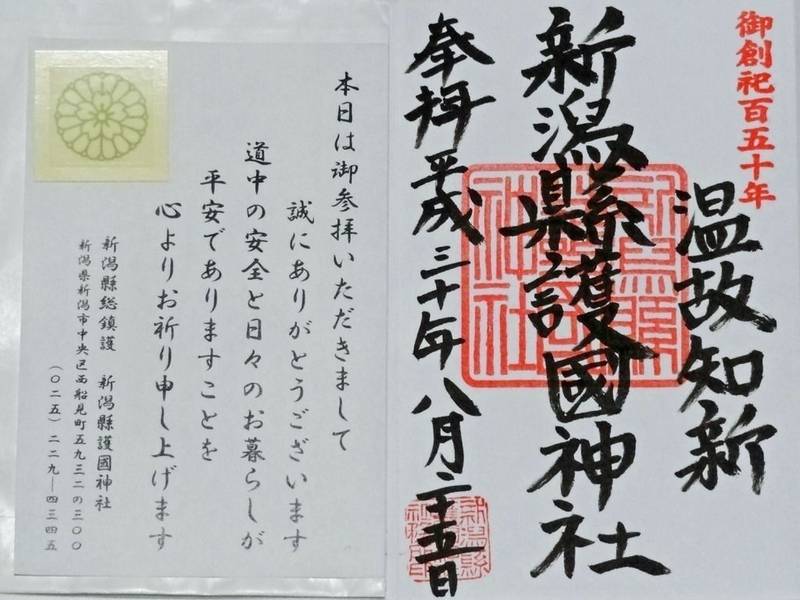 本日は御参拝いただきまして
誠にありがとうございます
道中の安全と日々のお暮らしが
平安でありますことを
心よりお祈り申し上げます
新潟縣総鎮護 新潟縣護國神社
新潟県新潟市中央区西船見町五九三二の三〇〇
(〇二五)二二九―四三四五
御創祀百五十年
温故知新
新潟縣護國神社
奉拝 平成三十年八月二十五日